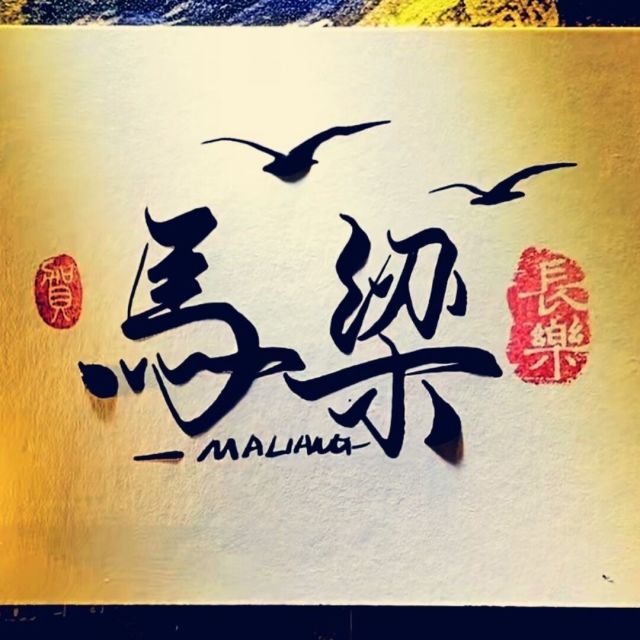 賀
馬梁
MALIANG
長樂